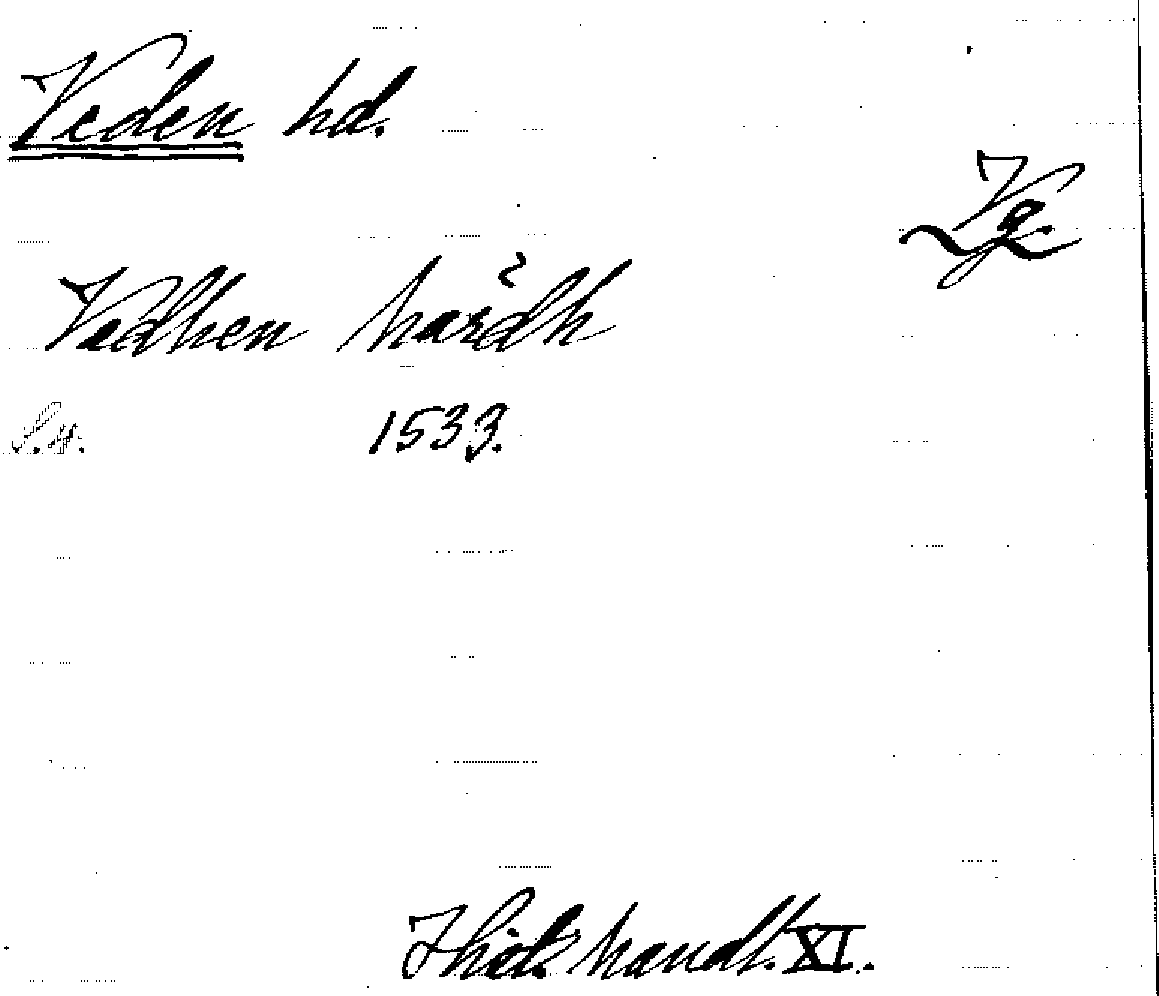 Veden hd.
Vg.
Vedhen härdh
S. 4. 1533.
Hist. handl. XI.